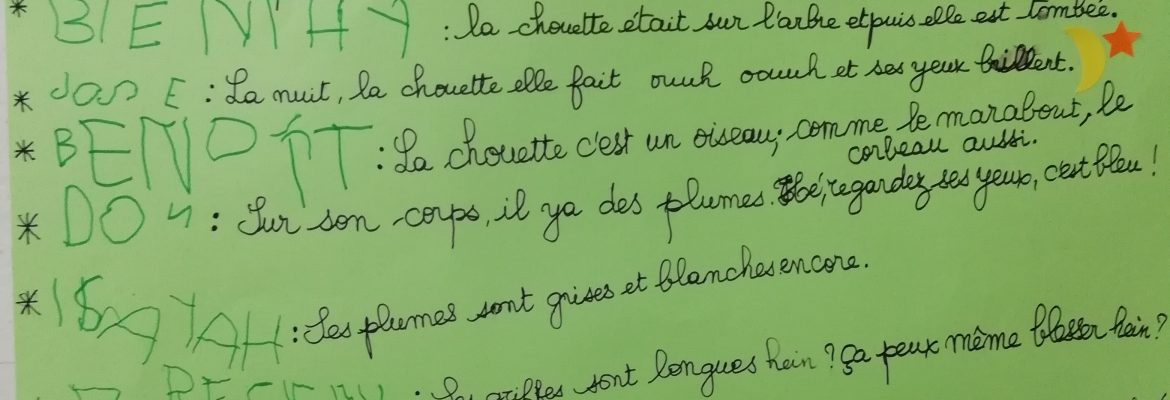 * BIENVHY : la chouette était sur l'arbre et puis elle est tombée.
* JOSDE : La nuit, la chouette elle fait ouuh oouuh et ses yeux brillent.
* BENOÎT : La chouette c'est un oiseau; comme le marabout, le
corbeau aussi.
* DON : Sur son corps, il ya des plumes. Hé, regardez ses yeux, c'est bleu !
* ISAYAH : Les plumes sont grises et blanches encore.
: Les griffes sont longues hein ? Ça peux même blesser hein ?